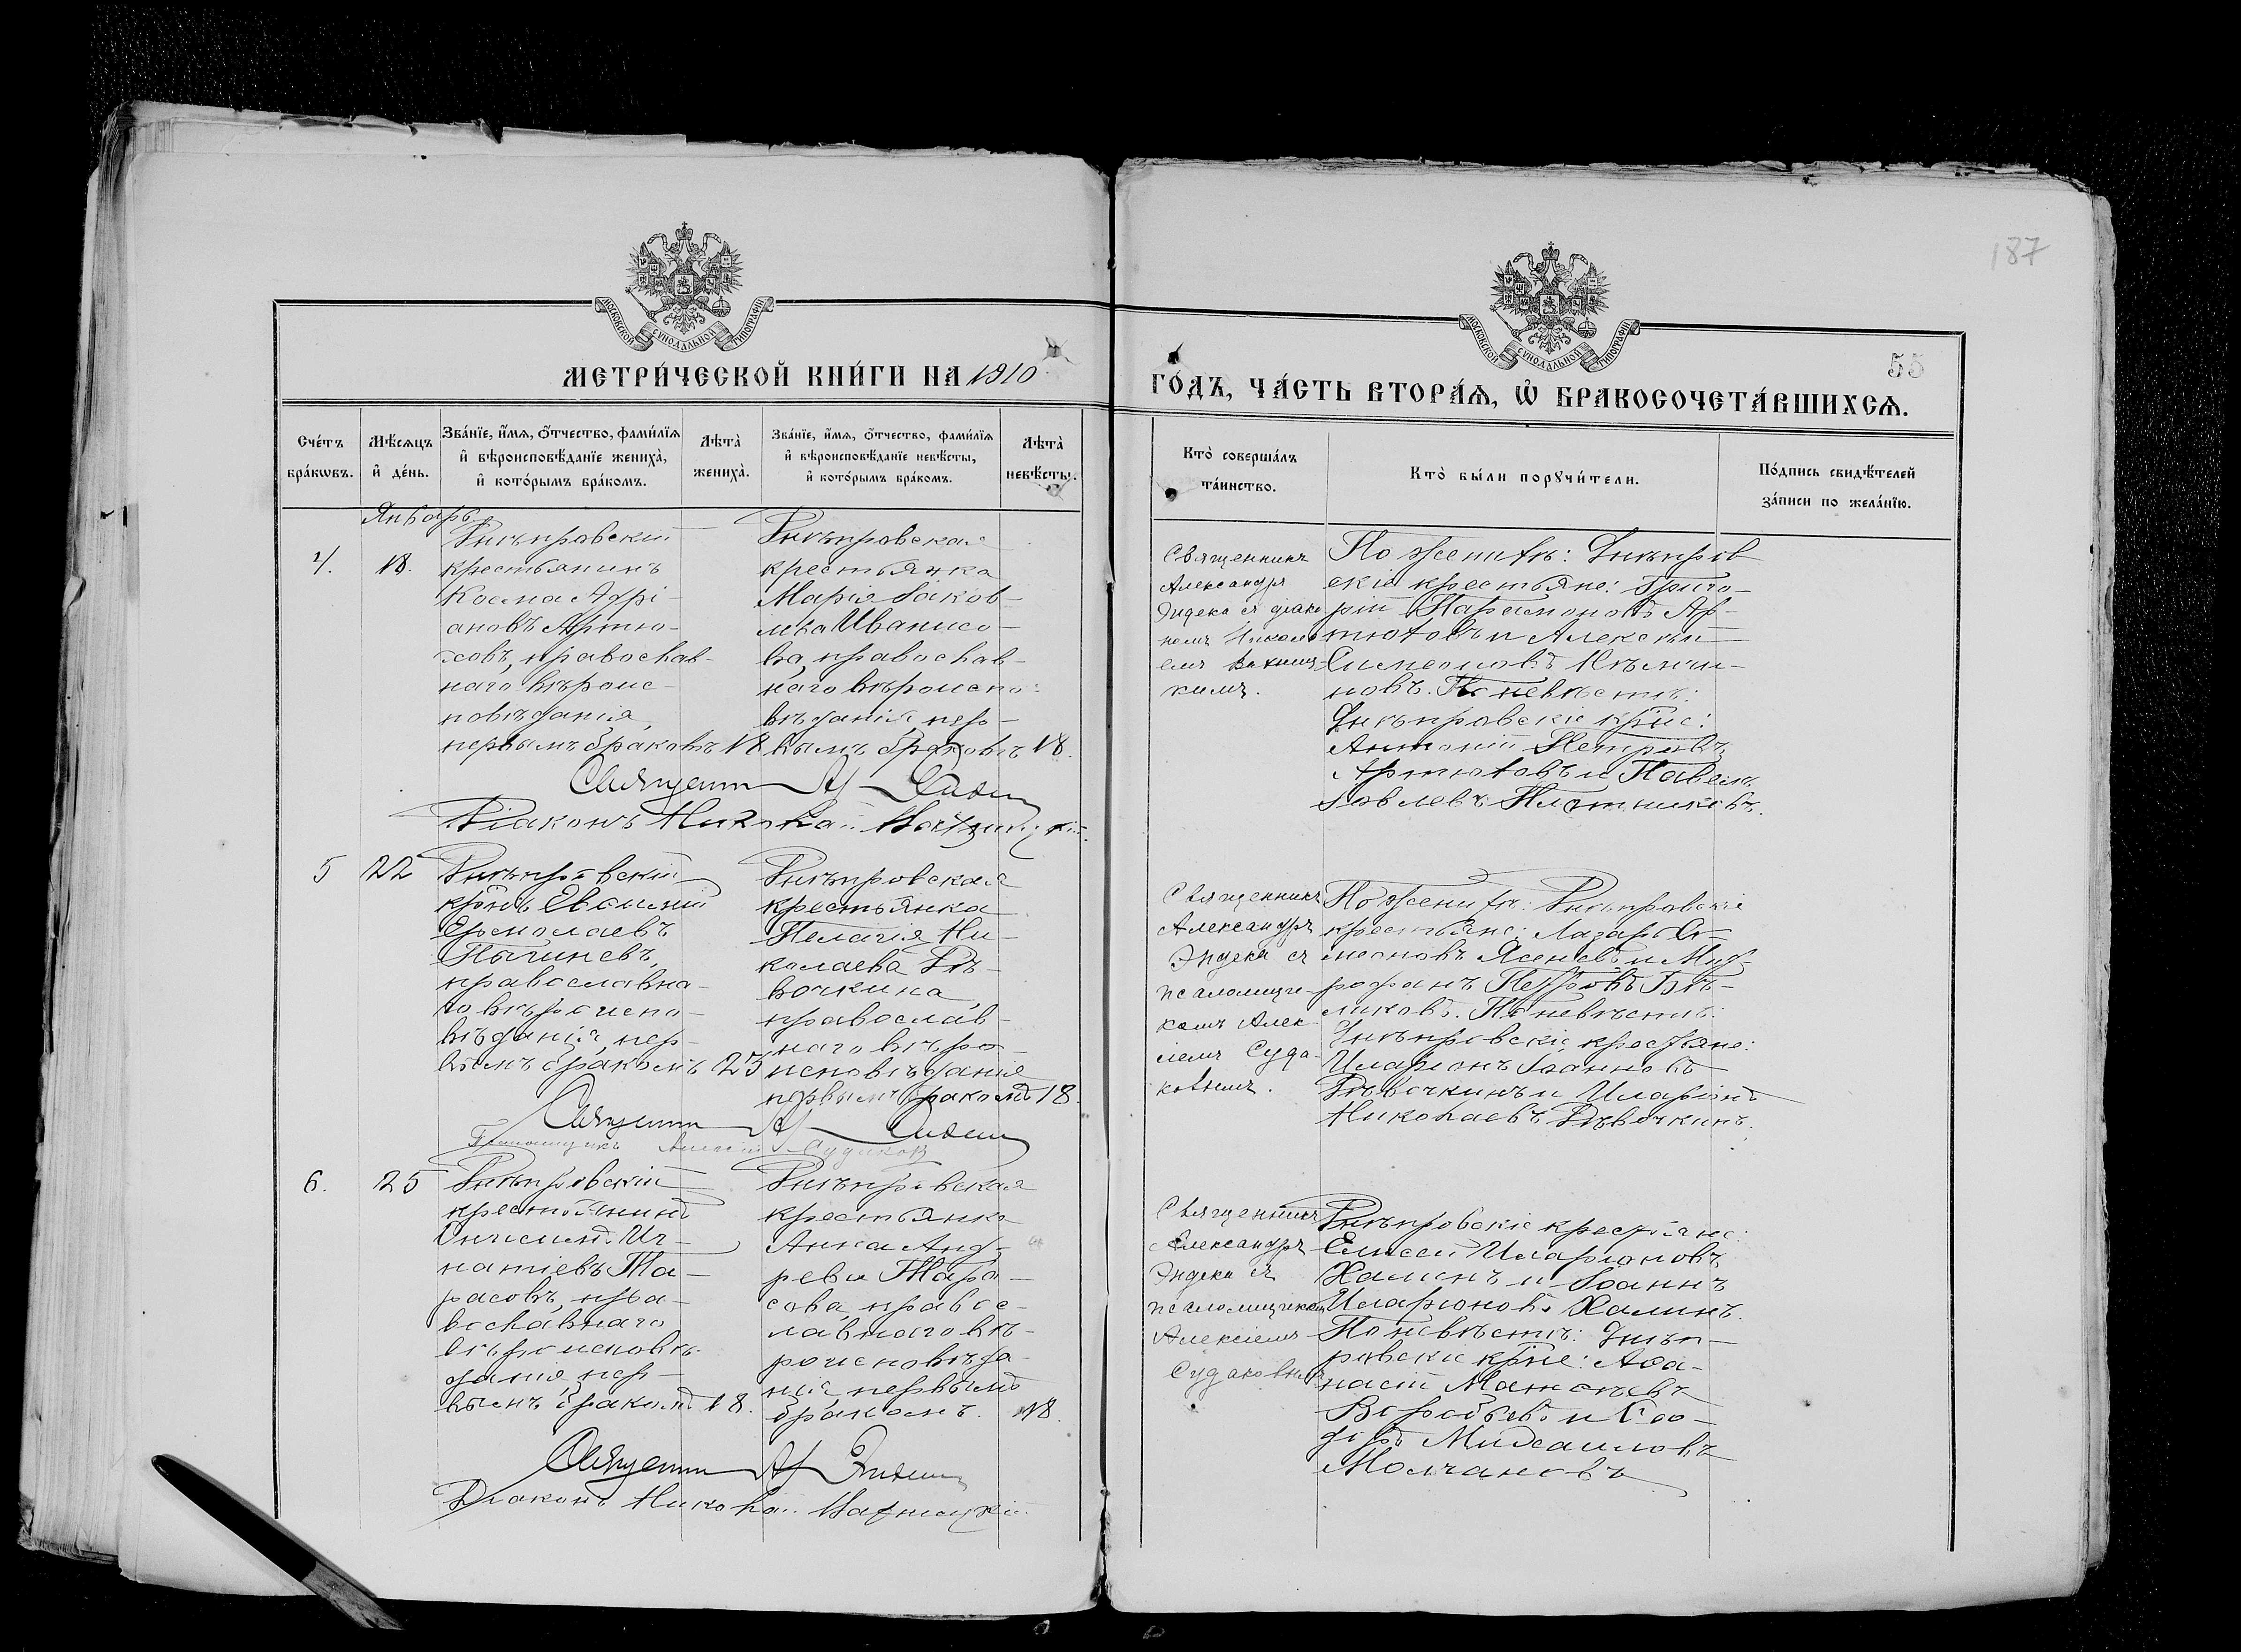 187
МОСКОВСКОЙ СѴНОДАЛЬНОЙ ТИПОГРАФІИ
МОСКОВСКОЙ СѴНОДАЛЬНОЙ ТИПОГРАФІИ
55
МЕТРИ́ЧЕСКОЙ КНИ́ГИ НА 1910
ГО́ДЪ, ЧА́СТЬ ВТОРА́Ѧ, Ѡ҆ БРАКОСОЧЕТА́ВШИХСѦ.
Сче́тъ бра́кѡвъ.
Мѣ́сяцъ и҆ де́нь.
Зва́нїе, и҆́мѧ, ѻ҆́тчество, фами́лїѧ
и҆ вѣроисповѣ́данїе жениха̀,
и҆ кото́рымъ бра́комъ.
Лѣта̀ жениха̀.
Зва́нїе, и҆́мѧ, ѻ҆́тчество, фами́лїѧ
и҆ вѣроисповѣ́данїе невѣ́сты,
и҆ кото́рымъ бра́комъ.
Лѣта̀ невѣ́сты.
Кто̀ соверша́лъ
та́инство.
Кто̀ бы́ли порꙋчи́тели.
По́дпись свидѣ́телей
за́писи по жела́нїю.
Январь
4.
18.
Днѣпровскій
крестьянинъ
Косма Адрі-
ановъ Артю-
ховъ, православ-
наго вѣроис-
повѣданія,
первымъ бракомъ 18
Днѣпровская
крестьянка
Марія Іаков-
лева Иванисо-
ва, православ-
наго вѣроиспо-
вѣданія, пер-
вымъ бракомъ 18.
Священникъ
Александръ
Эндека съ діако
номъ Никола
емъ
кимъ.
По женихѣ: Днѣпров
скіе крестьяне: Григо-
рій Парамоновъ Ар-
тюховъ и Алексѣй
Симеоновъ
новъ. По невѣстѣ:
Днѣпровскіе кр̃не:
Антоній Петровъ
Артюховъ и Павелъ
Яковлевъ Плотниковъ.
Священникъ А.
Діаконъ Николай
5
22
Днѣпровскій
кр̃нъ Евсигній
Ермолаевъ
Пычиневъ,
православна-
го вѣроиспо-
вѣданія, пер-
вымъ бракомъ 23
Днѣпровская
крестьянка
Пелагія Ни-
колаева Дѣ-
вочкина,
православ-
наго вѣро-
исповѣданія
первымъ бракомъ 18.
Священникъ
Александръ
Эндека съ
псаломщи-
комъ Алек
сіемъ Суда-
ковымъ.
По женихѣ: Днѣпровскіе
крестьяне: Лазарь Си-
меоновъ Ясеневъ и Мит-
рофанъ Петровъ Бѣ-
ликовъ. По невѣстѣ:
Днѣпровскіе крестьяне:
Иларіонъ Іоанновъ
Дѣвочкинъ и Иларіонъ
Николаевъ Дѣвочкинъ.
Священникъ А.
Псаломщикъ Алексій Судаковъ
6.
25
Днѣпровскій
крестьянинъ
Онисимъ Иг-
натіевъ Та-
расовъ, пра-
вославнаго
вѣроисповѣ-
данія, пер-
вымъ бракомъ 18.
Днѣпровская
крестьянка
Анна Анд-
реева Тара-
сова, правос-
лавнаго вѣ-
роисповѣда-
нія, первымъ
бракомъ. 18.
Священникъ
Александръ
Эндека съ
псаломщикомъ
Алексіемъ
Судаковымъ
Днѣпровскіе крестьяне:
Елисей Иларіоновъ
Халинъ и Іоаннъ
Иларіоновъ Халинъ.
По невѣстѣ: Днѣп-
ровскіе кр̃не: Аѳа-
насій Матѳѣевъ
Воробьевъ и Ѳео-
доръ Михаиловъ
Молчановъ
Священникъ А.
Діаконъ Николай